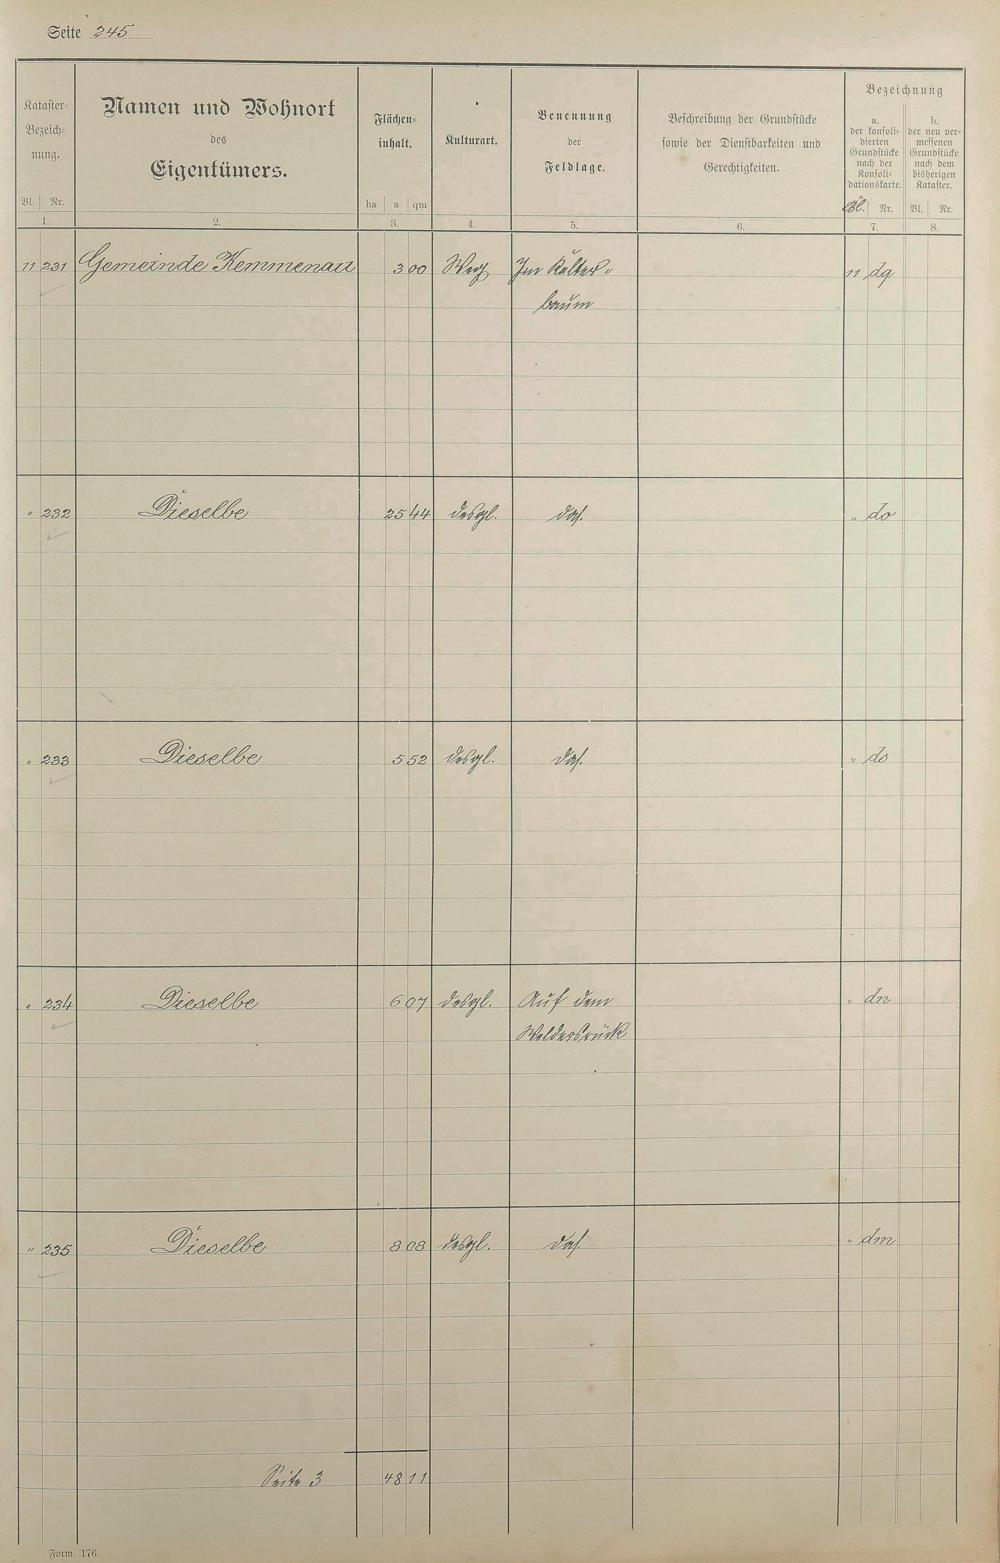 Seite 245
Kataster-
Bezeich-
nung.
Bl. Nr.
Namen und Wohnort
des
Eigentümers.
Flächen-
inhalt.
ha a qm
Kulturart.
Benennung
der
Feldlage.
Beschreibung der Grundstücke
sowie der Dienstbarkeiten und
Gerechtigkeiten.
Bezeichnung
a.
der konsoli-
dierten
Grundstücke
nach der
Konsoli-
dationskarte.
Bl. Nr.
b.
der neu ver-
messenen
Grundstücke
nach dem
bisherigen
Kataster.
Bl. Nr.
1. 2. 3. 4. 5. 6. 7. 8.
11 231 Gemeinde Kemmenau 3 00 Weg Im Kälter- 11 dq
baum
" 232 Dieselbe 25 44 desgl. das. " do
" 233 Dieselbe 5 52 desgl. das. " do
" 234 Dieselbe 6 07 desgl. Auf dem " dn
" 235 Dieselbe 8 08 desgl. das. " dm
Seite 3 48 11
Form. 176.